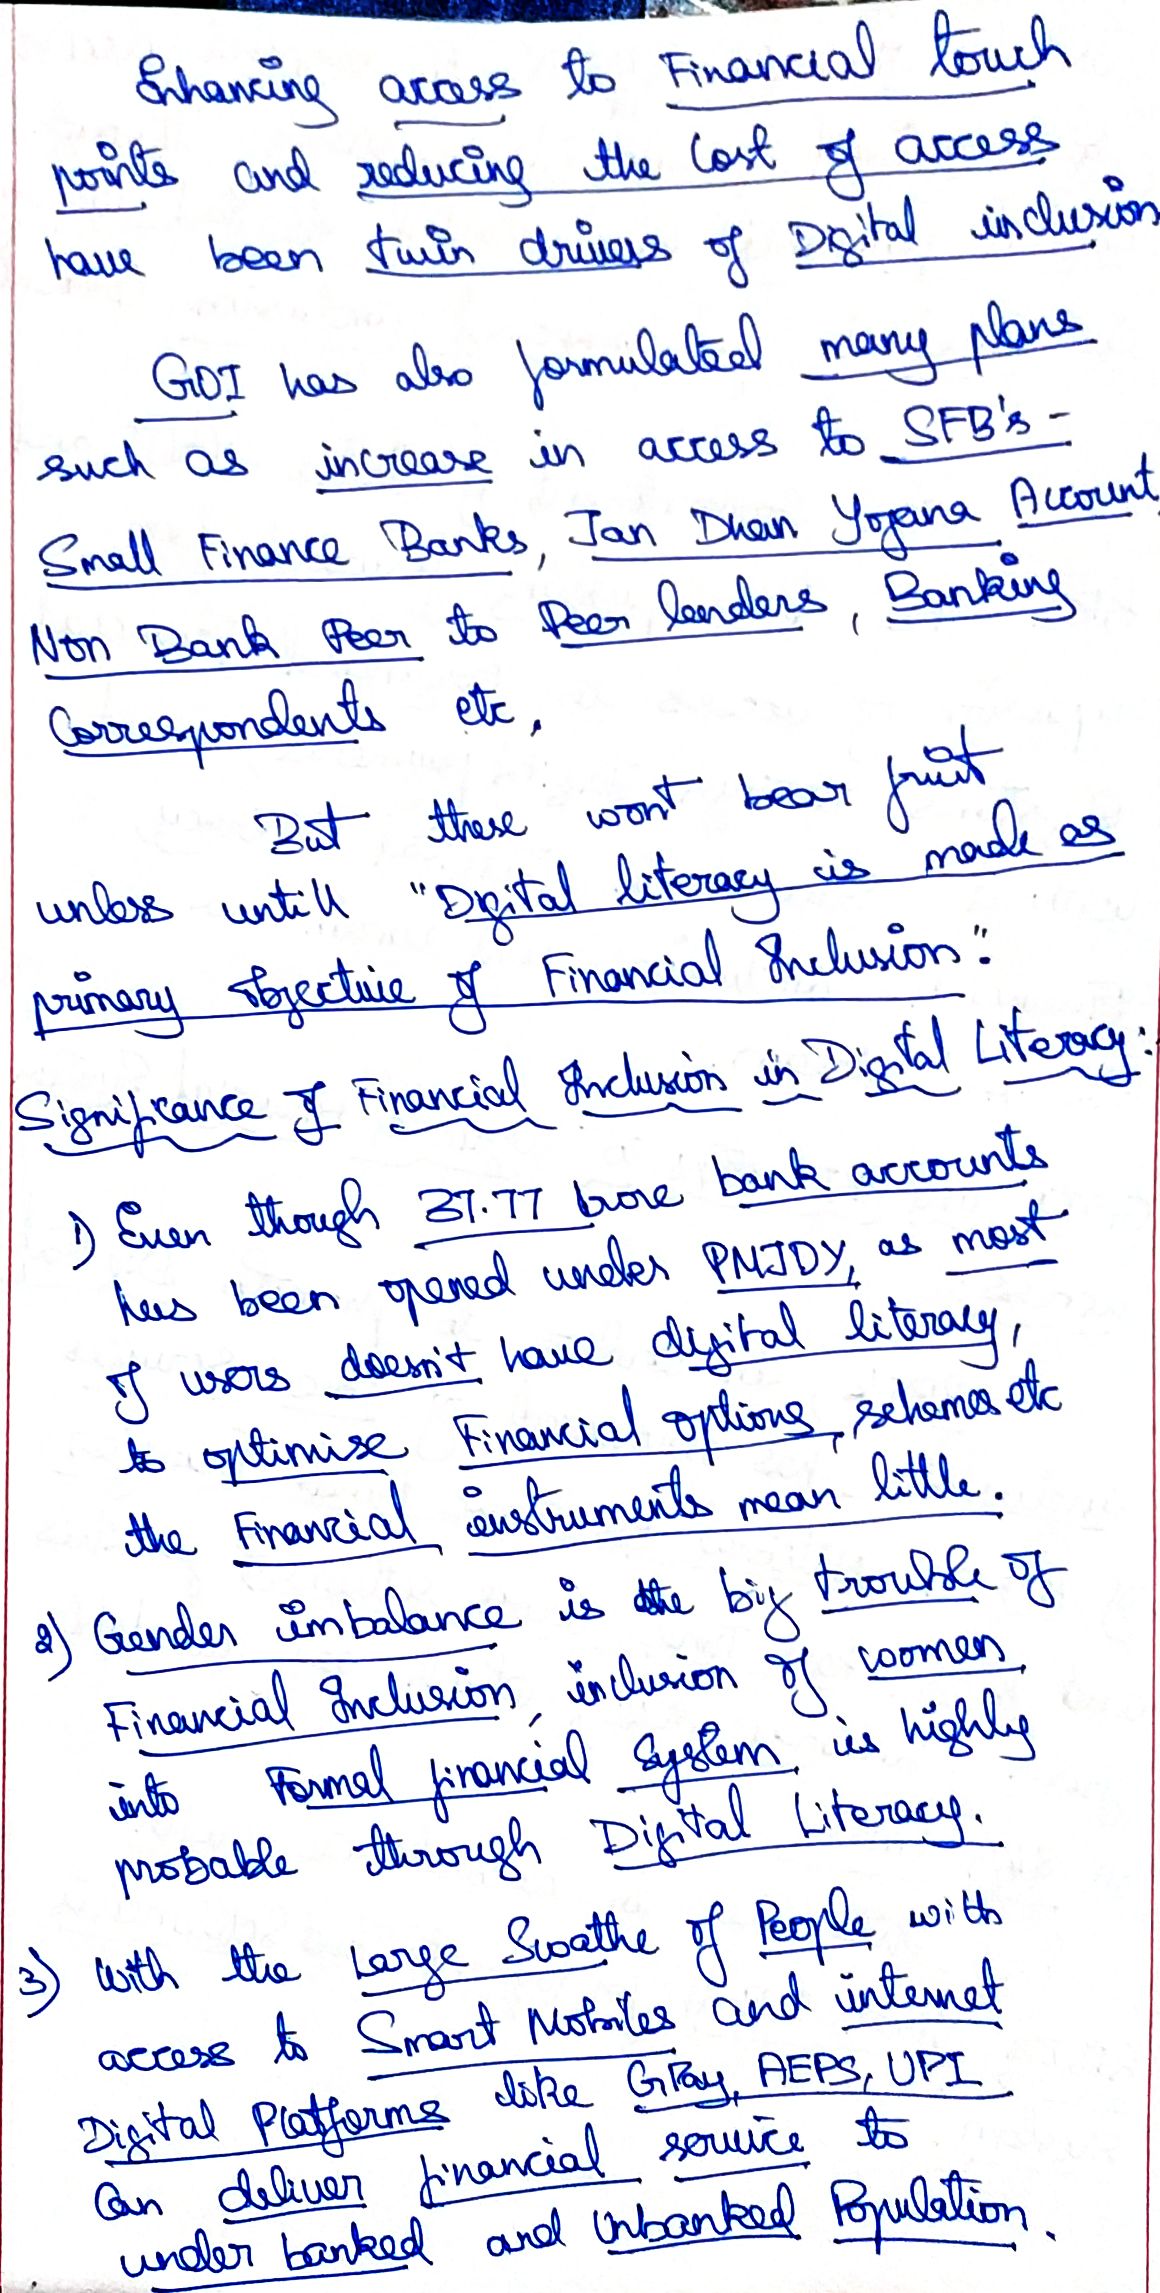 Enhancing access to Financial touch
points and reducing the cost of access
have been twin drivers of Digital inclusion
GOI has also formulated many plans
such as increase in access to SFB's -
Small Finance Banks, Jan Dhan Yojana Account,
Non Bank Peer to Peer lenders, Banking
Correspondents etc,
But these wont bear fruit
unless untill "Digital literacy is made as
primary objective of Financial Inclusion".
Significance of Financial Inclusion in Digital Literacy:
1) Even though 37.77 crore bank accounts
has been opened under PMJDY, as most
of users doesn't have digital literacy,
to optimise Financial options, schemes etc
the Financial instruments mean little.
2) Gender imbalance is the big trouble of
Financial Inclusion, inclusion of women
into Formal financial System is highly
probable through Digital Literacy.
3) With the Large Swathe of People with
access to Smart Mobiles and internet
Digital Platforms like GPay, AEPS, UPI
can deliver financial service to
under banked and Unbanked Population.